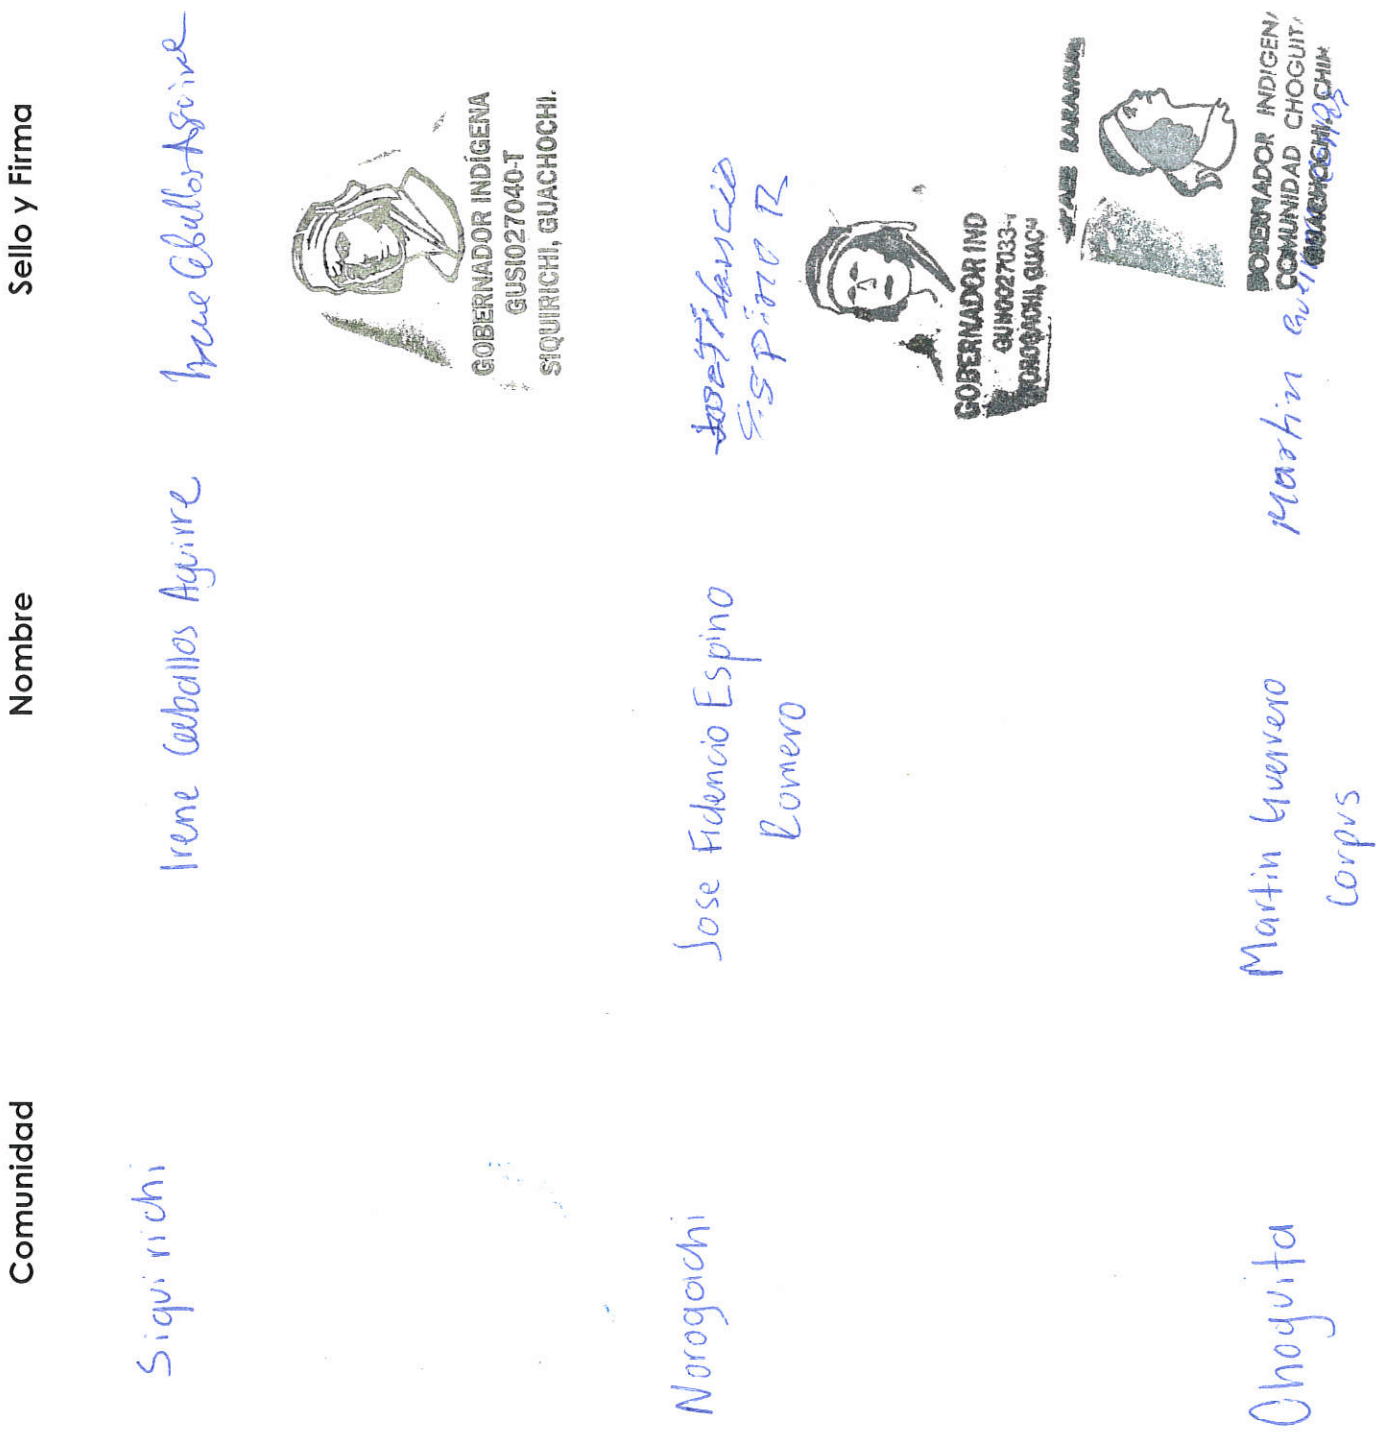 Comunidad Nombre Sello y Firma
Siquirichi Irene Ceballos Aguirre Irene Ceballos Aguirre
GOBERNADOR INDÍGENA
GUSI027040-T
SIQUIRICHI, GUACHOCHI.
Norogachi Jose Fidencio Espino
Romero
Espino R
GOBERNADOR IND
GUNO027033-
NOROGACHI, GUAC
Choguita Martin Guerrero
Corpus
Martin
RARAMURI
GOBERNADOR INDIGENA
COMUNIDAD CHOGUITA